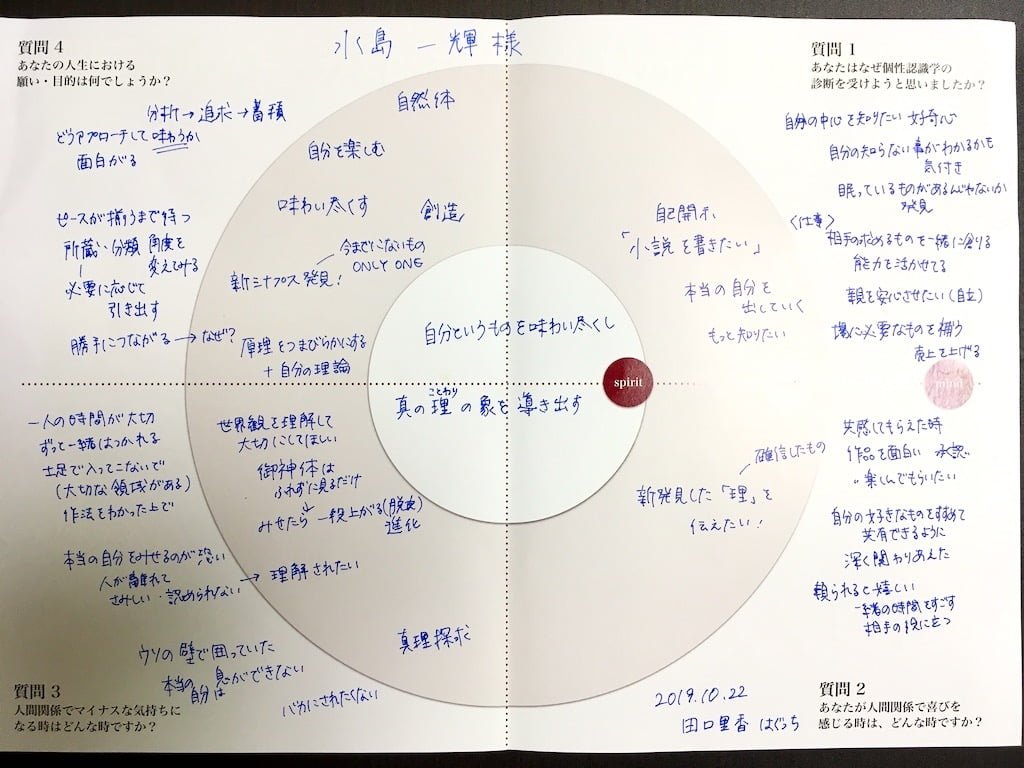 水島 一輝 様
質問 4
あなたの人生における
願い・目的は何でしょうか？
分析→追求→蓄積
どうアプローチして味わうか
面白がる
ピースが揃うまで待つ
所蔵・分類 角度を
変えてみる
必要に応じて
引き出す
勝手につながる → なぜ？
自然体
自分を楽しむ
味わい尽くす
創造
今までにないもの
ONLY ONE
新シナプス発見！
原理をつまびらかにする
+ 自分の理論
質問 1
あなたはなぜ個性認識学の
診断を受けようと思いましたか？
自分の中心を知りたい 好奇心
自分の知らない事がわかるかも
気付き
眠っているものがあるんじゃないか
発見
〈仕事〉
相手の求めるものを一緒に創る
能力を活かせてる
親を安心させたい(自立)
場に必要なものを補う
売上を上げる
自己開示
「小説を書きたい」
本当の自分を
出していく
もっと知りたい
自分というものを味わい尽くし
spirit
mind
ことわり
真の理の象を導き出す
一人の時間が大切
ずっと一緒はつかれる
土足で入ってこないで
(大切な領域がある)
作法をわかった上で
本当の自分をみせるのが恐い
人が離れて
さみしい・認められない
→ 理解されたい
世界観を理解して
大切にしてほしい
御神体は
ふれずに見るだけ
みせたら 一段上がる(脱皮)
進化
真理探求
ウソの壁で囲っていた
本当の
自分は
息ができない
バカにされたくない
質問 3
人間関係でマイナスな気持ちに
なる時はどんな時ですか？
確信したもの
新発見した「理」を
伝えたい！
共感してもらえた時
作品を面白い 承認
〃 楽しんでもらいたい
自分の好きなものをすすめて
共有できるように
深く関わりあえた
頼られると嬉しい
一緒の時間をすごす
相手の役に立つ
2019.10.22
田口里香 はぐっち
質問 2
あなたが人間関係で喜びを
感じる時は、どんな時ですか？